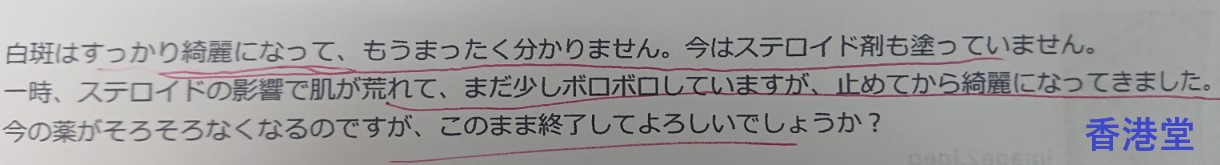 白斑はすっかり綺麗になって、もうまったく分かりません。今はステロイド剤も塗っていません。
一時、ステロイドの影響で肌が荒れて、まだ少しボロボロしていますが、止めてから綺麗になってきました。
今の薬がそろそろなくなるのですが、このまま終了してよろしいでしょうか？
香港堂